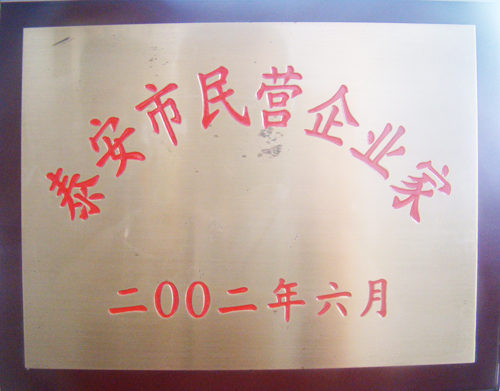 泰安市民营企业家
二〇〇二年六月